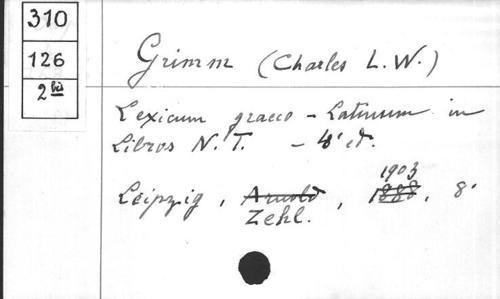 310
126
2 bis
Grimm (Charles L. W.)
Lexicum graeco-Latinum in
Libros N. T. - 4' ed.
Leipzig, Arnold, 1888, 8°
Zehl. 1903